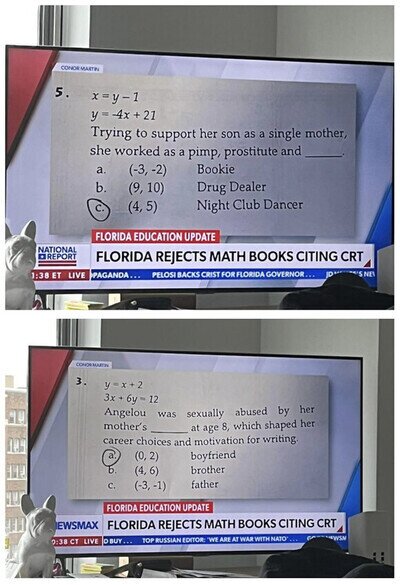 CONOR MARTIN
5. x = y – 1
y = -4x + 21
Trying to support her son as a single mother,
she worked as a pimp, prostitute and ______.
a. (-3, -2) Bookie
b. (9, 10) Drug Dealer
c. (4, 5) Night Club Dancer
FLORIDA EDUCATION UPDATE
NATIONAL
REPORT
FLORIDA REJECTS MATH BOOKS CITING CRT
1:38 ET LIVE
OPAGANDA... PELOSI BACKS CRIST FOR FLORIDA GOVERNOR...
CONOR MARTIN
3. y = x + 2
3x + 6y = 12
Angelou was sexually abused by her
mother's ______ at age 8, which shaped her
career choices and motivation for writing.
a. (0, 2) boyfriend
b. (4, 6) brother
c. (-3, -1) father
FLORIDA EDUCATION UPDATE
NEWSMAX
FLORIDA REJECTS MATH BOOKS CITING CRT
:38 CT LIVE
D BUY... TOP RUSSIAN EDITOR: 'WE ARE AT WAR WITH NATO'...